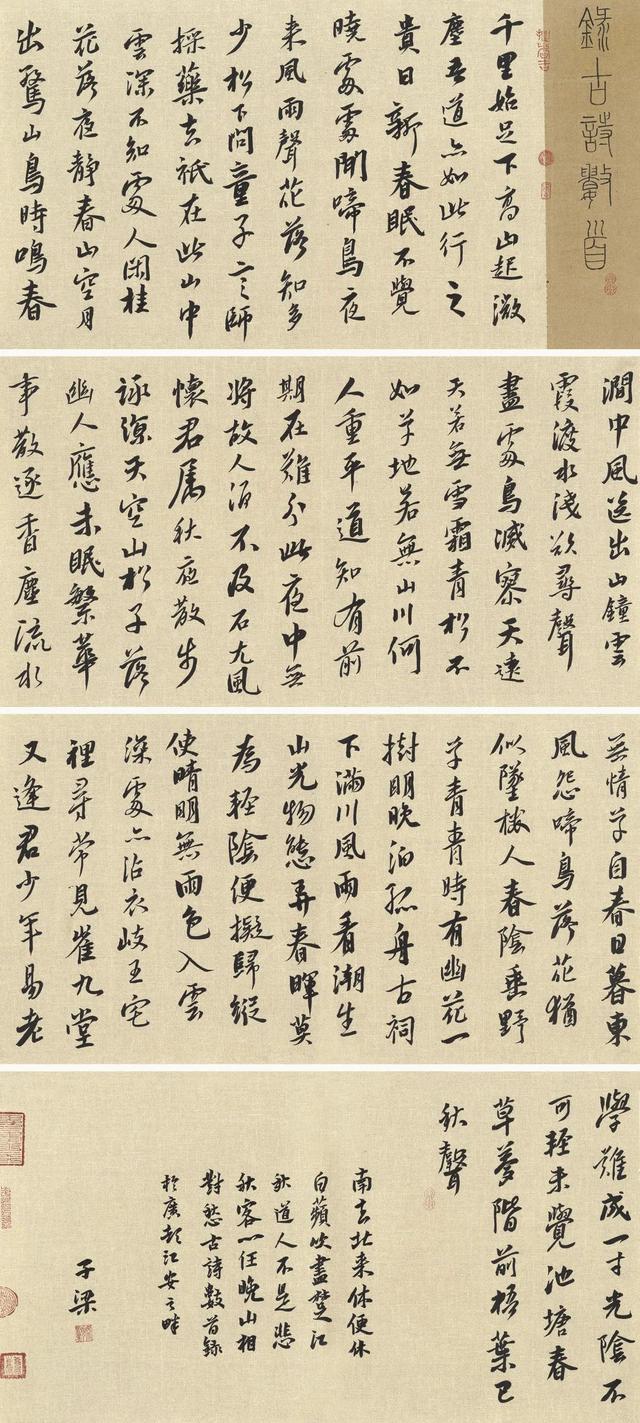 錄古詩數首
千里始足下高山起微
塵吾道亦如此行之
貴日新春眠不覺
曉處處聞啼鳥夜
来風雨聲花落知多
少松下問童子言師
採藥去祇在此山中
雲深不知處人閑桂
花落夜静春山空月
出驚山鳥時鳴春
澗中風送出山鐘雲
霞渡水淺欲尋聲
盡處鳥滅寥天遠
天若無雪霜青松不
如草地若無山川何
人重平道知有前
期在難分此夜中無
將故人酒不及石尤風
懷君屬秋夜散步
詠涼天空山松子落
幽人應未眠繁華
事散逐香塵流水
無情草自春日暮東
風怨啼鳥落花猶
似墜樓人春陰垂野
草青青時有幽花一
樹明晚泊孤舟古祠
下滿川風雨看潮生
山光物態弄春暉莫
為輕陰便擬歸縱
使晴明無雨色入雲
深處亦沾衣岐王宅
裡尋常見崔九堂
又逢君少年易老
學難成一寸光陰不
可輕未覺池塘春
草夢階前梧葉已
秋聲
南去北来休便休
白蘋吹盡楚江
秋道人不是悲
秋客一任晚山相
對愁古詩數首錄
於江安之畔
子梁